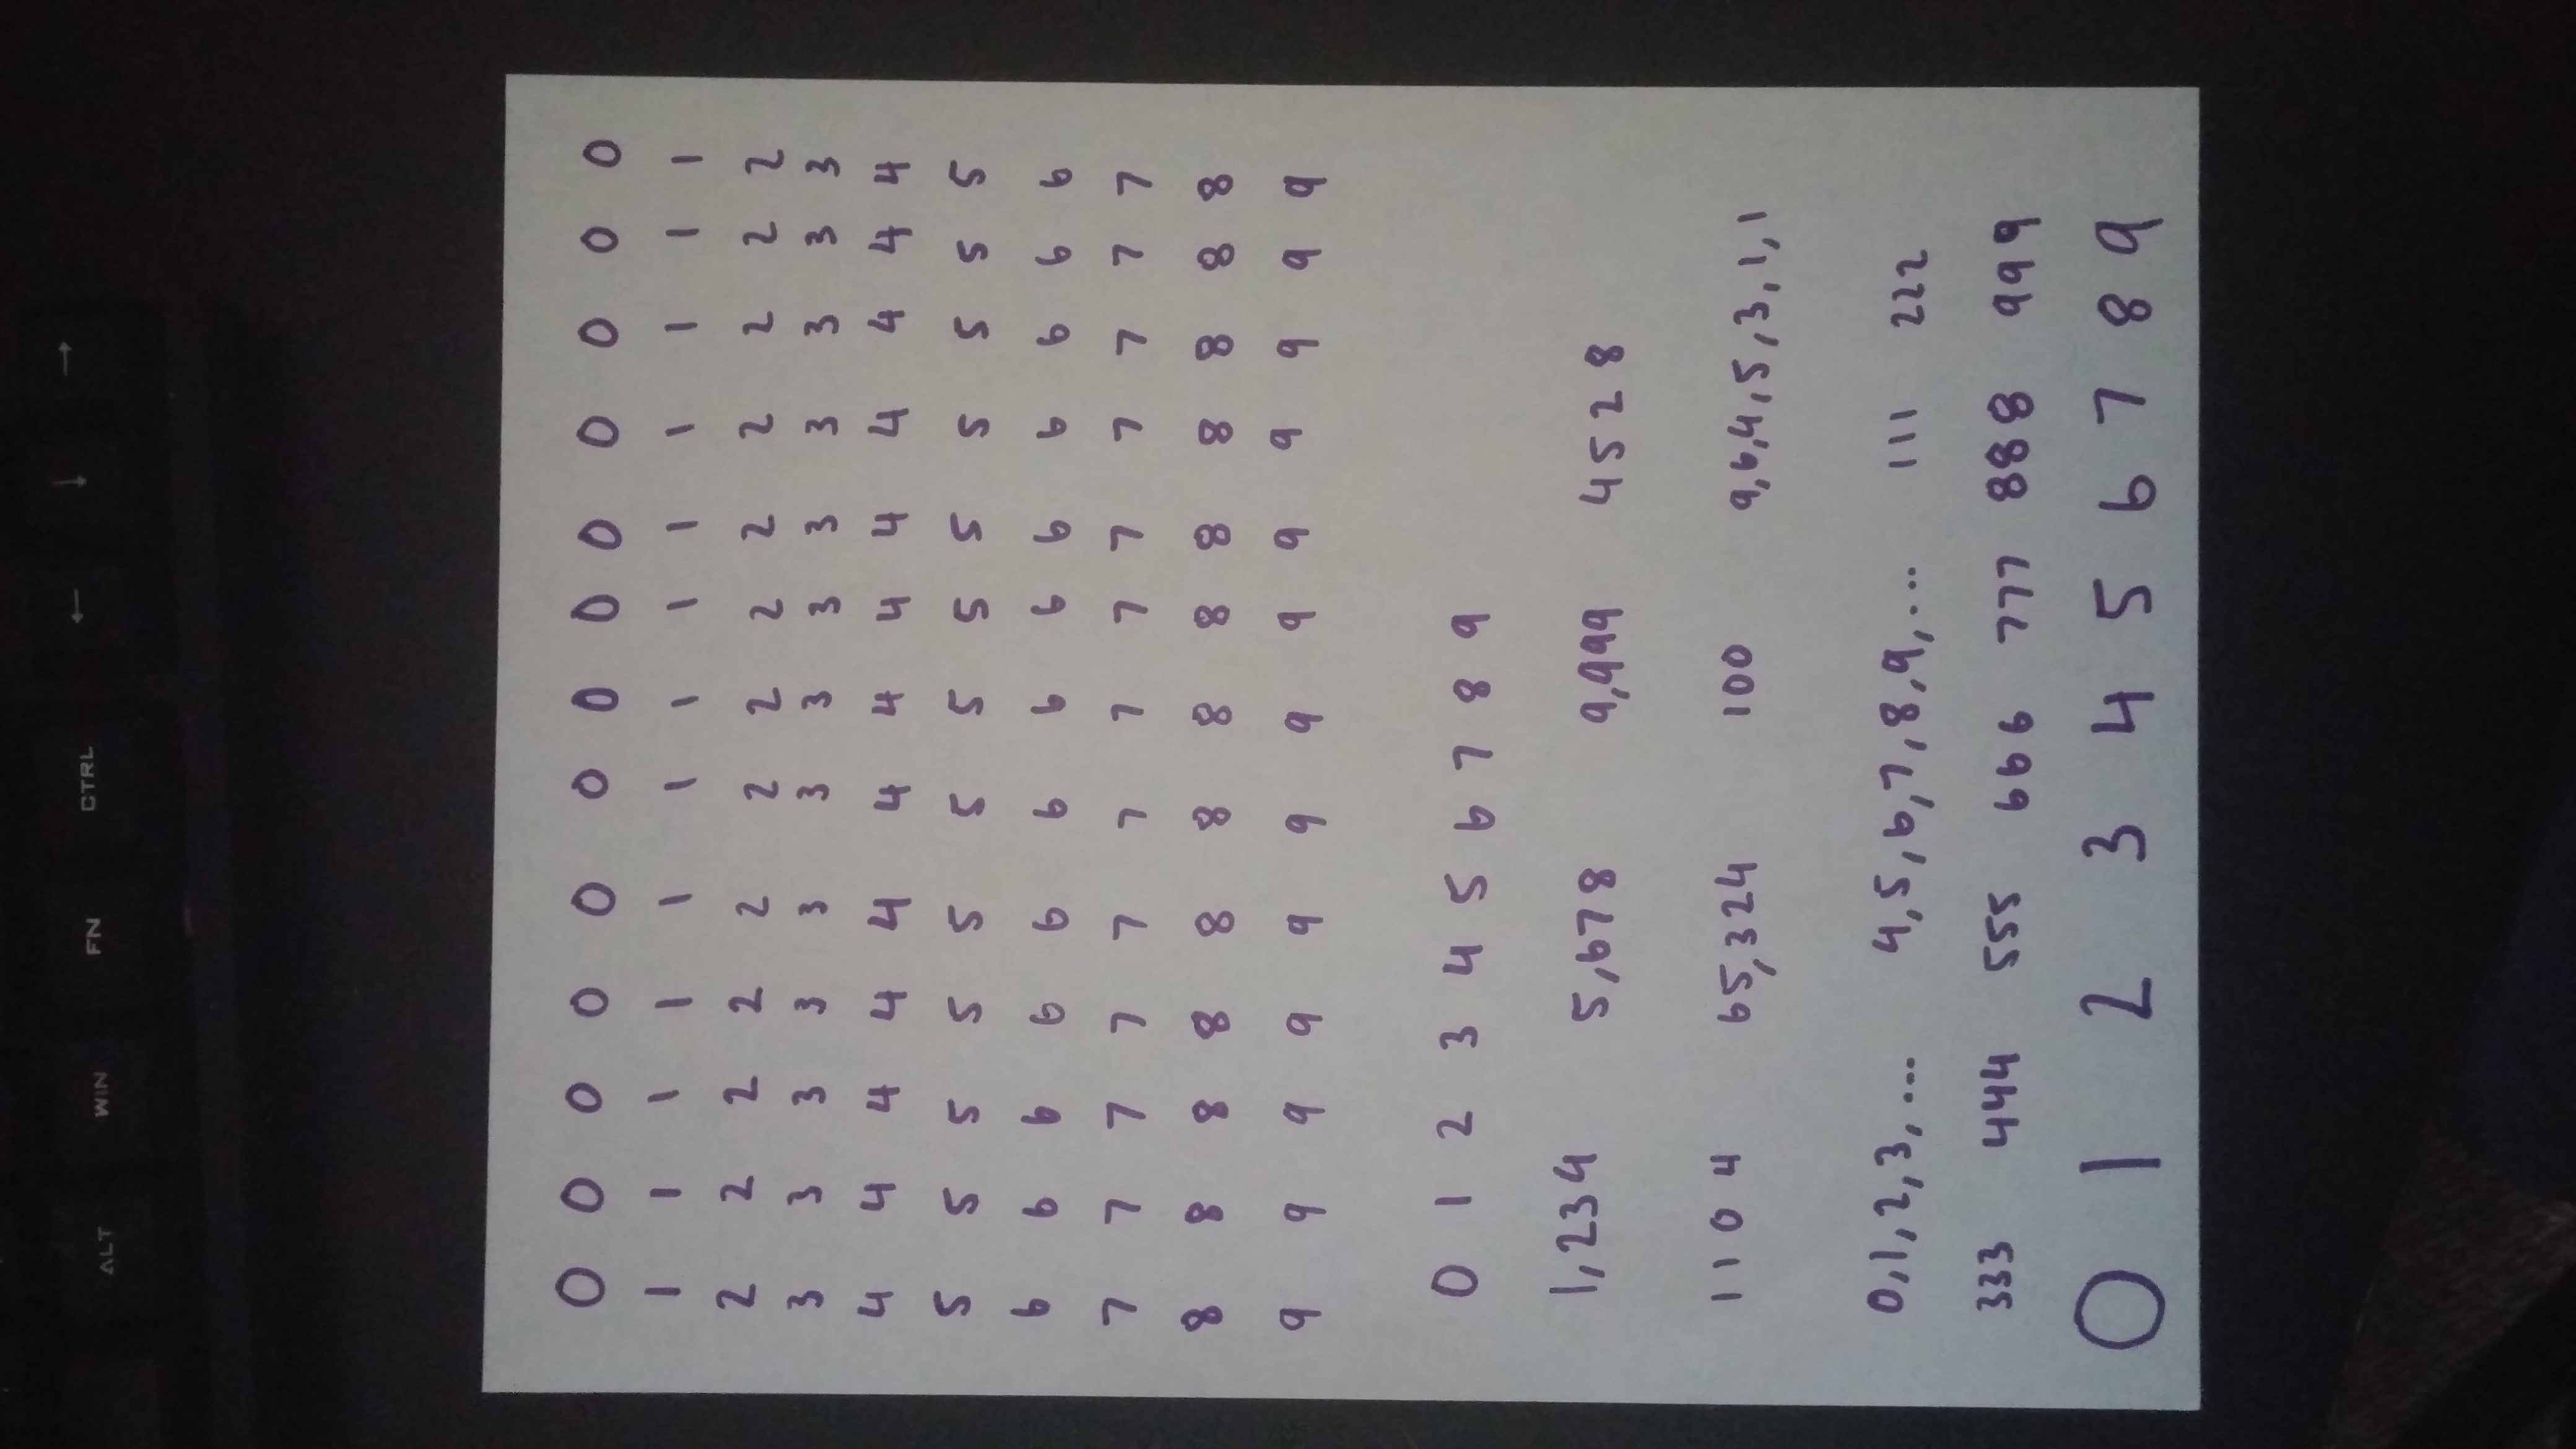 ALT WIN FN CTRL
0 0 0 0 0 0 0 0 0 0 0 0 0
1 1 1 1 1 1 1 1 1 1 1 1 1
2 2 2 2 2 2 2 2 2 2 2 2 2
3 3 3 3 3 3 3 3 3 3 3 3 3
4 4 4 4 4 4 4 4 4 4 4 4 4
5 5 5 5 5 5 5 5 5 5 5 5 5
6 6 6 6 6 6 6 6 6 6 6 6 6
7 7 7 7 7 7 7 7 7 7 7 7 7
8 8 8 8 8 8 8 8 8 8 8 8 8
9 9 9 9 9 9 9 9 9 9 9 9 9
0 1 2 3 4 5 6 7 8 9
1,234 5,678 9,999 4528
1104 65,324 100 9,6,4,5,3,1,1
0,1,2,3,... 4,5,6,7,8,9,... 111 222
333 444 555 666 777 888 999
0 1 2 3 4 5 6 7 8 9